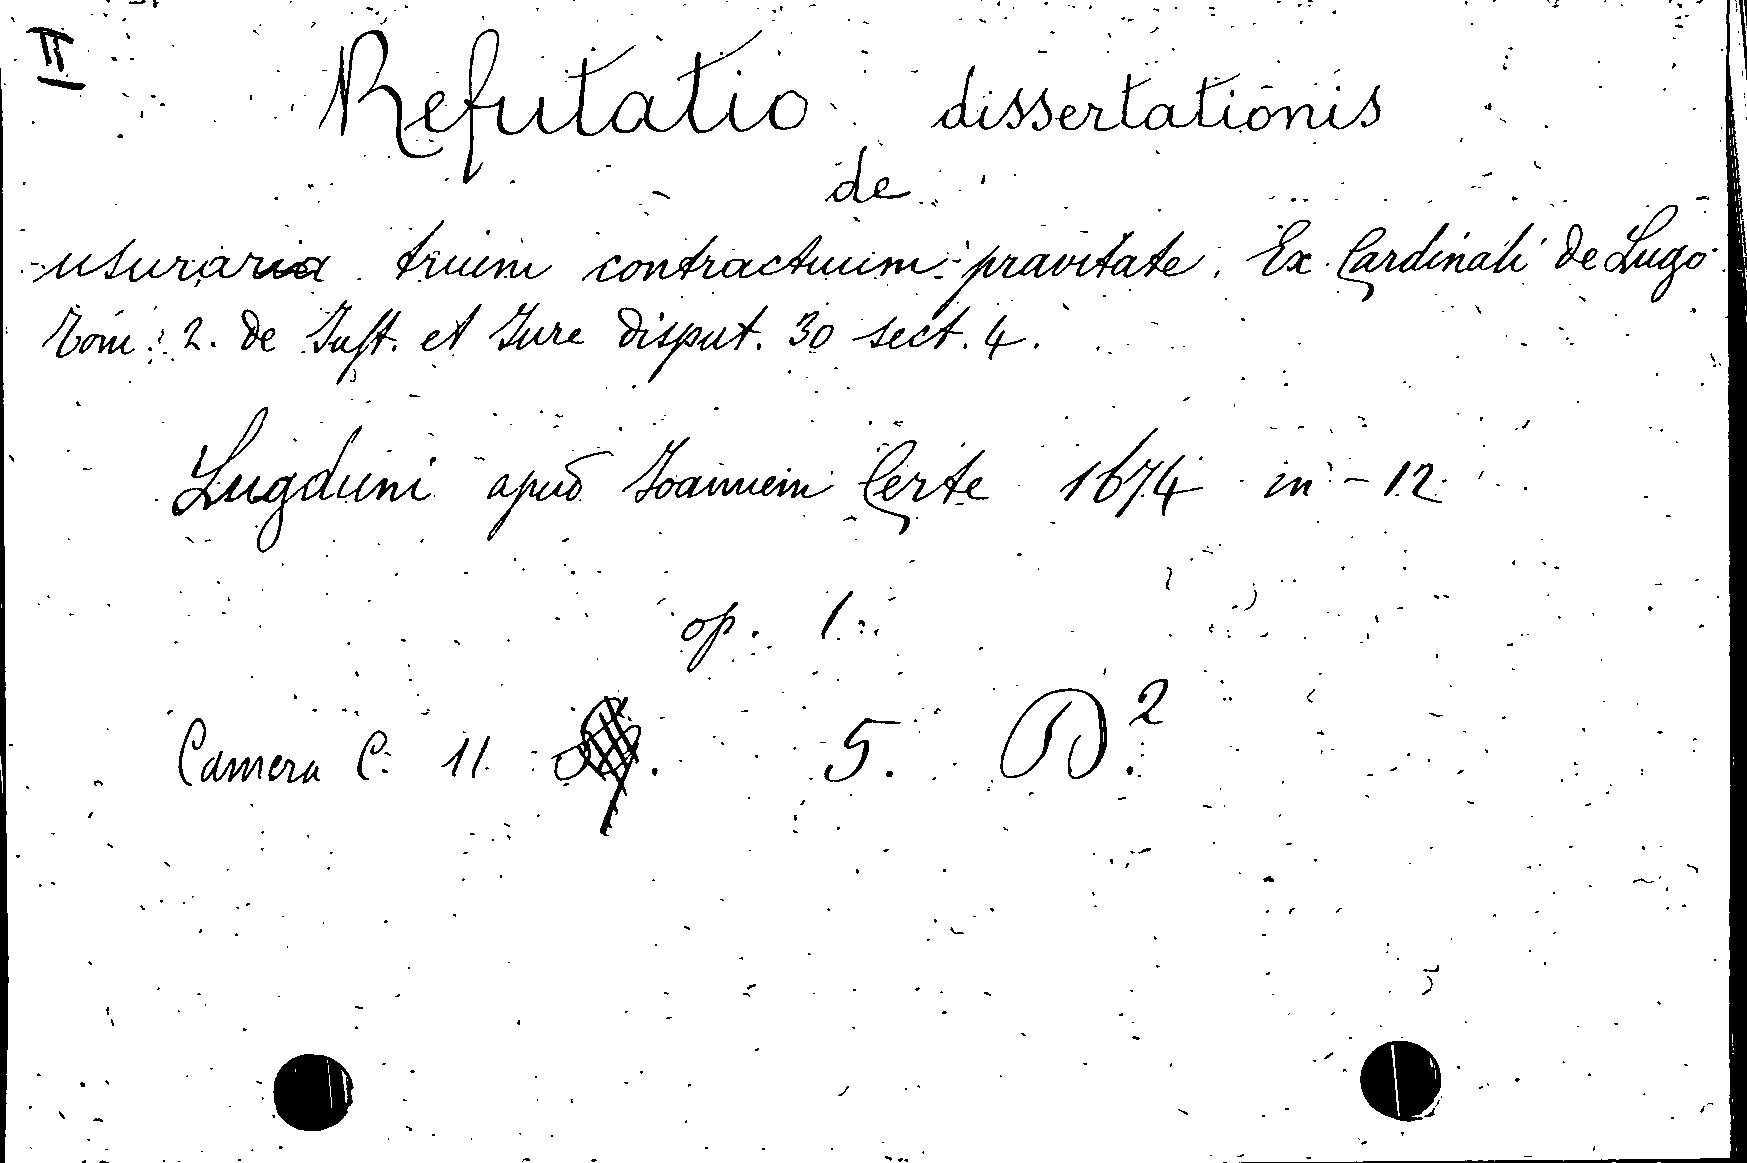 II
Refutatio dissertationis
de
usuraria trium contractuum pravitate. Ex Cardinali de Lugo
Tom: 2. de Just. et Jure disput. 30 sect. 4.
Lugduni apud Joannem Certe 1674 in-12
op. 1.
Camera C. 11 5. D.2